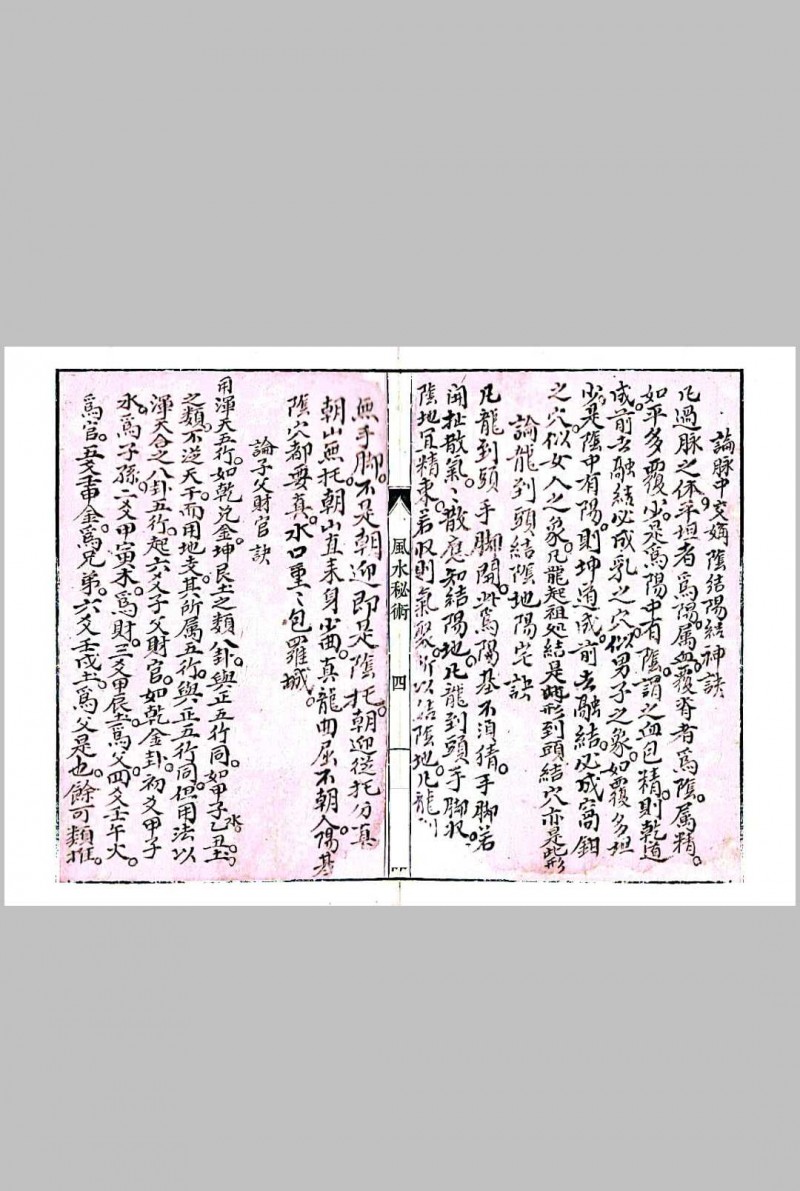 論脉中交媾陰結陽結神訣
凡過脉之体平坦者爲陽屬血覆脊者爲陰屬精。
如平多覆少是爲陽中有陰謂之血包精。則乾道
成前去融結必成乳之穴似男子之象。如覆多坦
少是陰中有陽則坤道成前去融結必成窩鉗
之穴似女人之象。凡龍起祖処結是此形到頭結穴亦是此形
論龍到頭結陰地陽宅訣
凡龍到頭手脚開。此爲陽基不須猜。手脚若
開扯散氣。〻散應知結陽地。凡龍到頭手脚収。
陰地宜精求。若収則氣聚所以結陰地。凡龍
風水秘術 四
無手脚。不是朝迎即是陰托。朝迎從托分真
朝山無托。朝山直来身少面。真龍曲屈不朝人陽基
陰穴都要真。水口重〻包羅城。
論子父財官訣
用渾天五行。如乾兌金坤艮土之類。八卦與正五行同。如甲子水乙丑土。
之類。不逆天干而用地支。其所属五行。與正五行同。但用法以
渾天合之八卦五行。起六爻子父財官。如乾金卦。初爻甲子
水。爲子孫。二爻甲寅木。爲財。三爻甲辰土。爲父。四爻壬午火。
爲官。五爻壬申金。爲兄弟。六爻壬戌土。爲父是也。餘可類推。